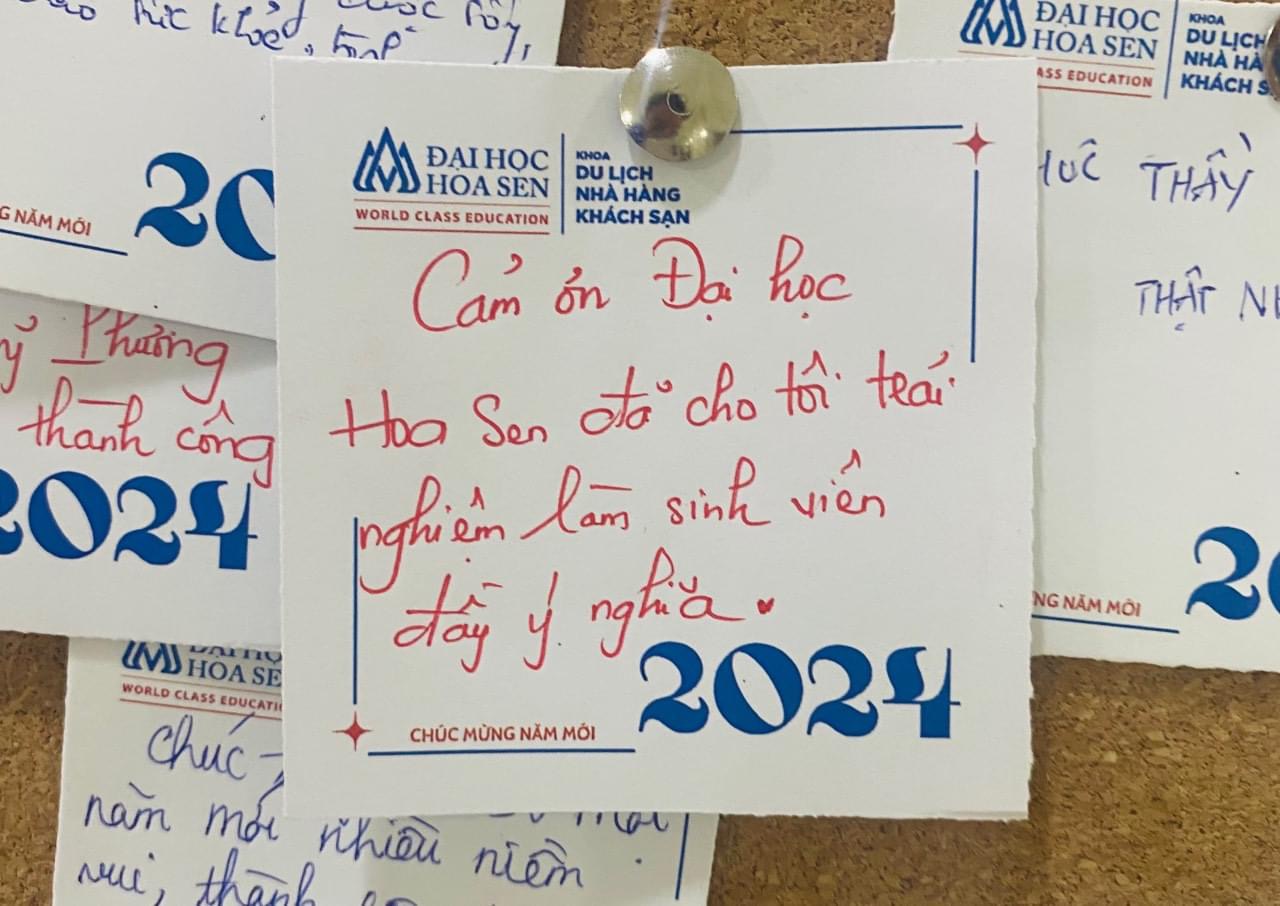 khoẻ,
NĂM MỚI
20
Phương
thành công
2024
ĐẠI HỌC
HOA SEN
WORLD CLASS EDUCATION
KHOA
DU LỊCH
NHÀ HÀNG
KHÁCH SẠN
Cảm ơn Đại học
Hoa Sen đã cho tôi trải
nghiệm làm sinh viên
đầy ý nghĩa.
CHÚC MỪNG NĂM MỚI
2024
ĐẠI HỌC
HOA SEN
CLASS EDUCATION
KHOA
DU LỊCH
NHÀ HÀ
KHÁCH S
THẦY
THẬT
NG NĂM MỚI
20
HOA SE
WORLD CLASS EDUCATI
Chúc
năm mới nhiều niềm
vui, thành